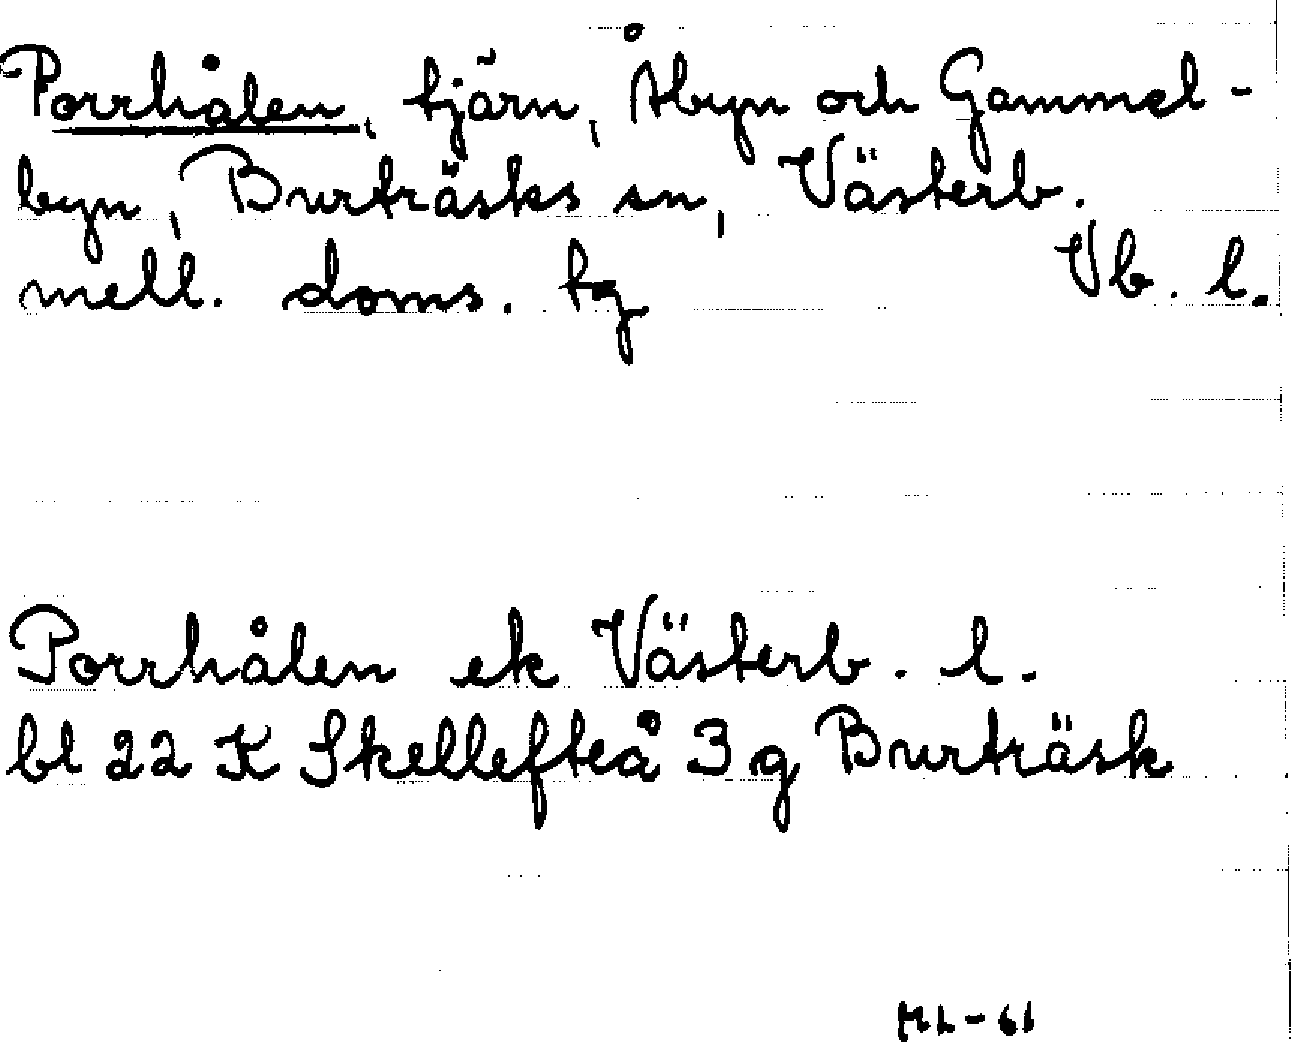 Porrhålen, tjärn, Åbyn och Gammel-
byn, Burträsks sn, Västerb.
mell. doms. tg Vb. l.
Porrhålen ek Västerb. l.
bl 22 K Skellefteå 3 g Burträsk
ML-61